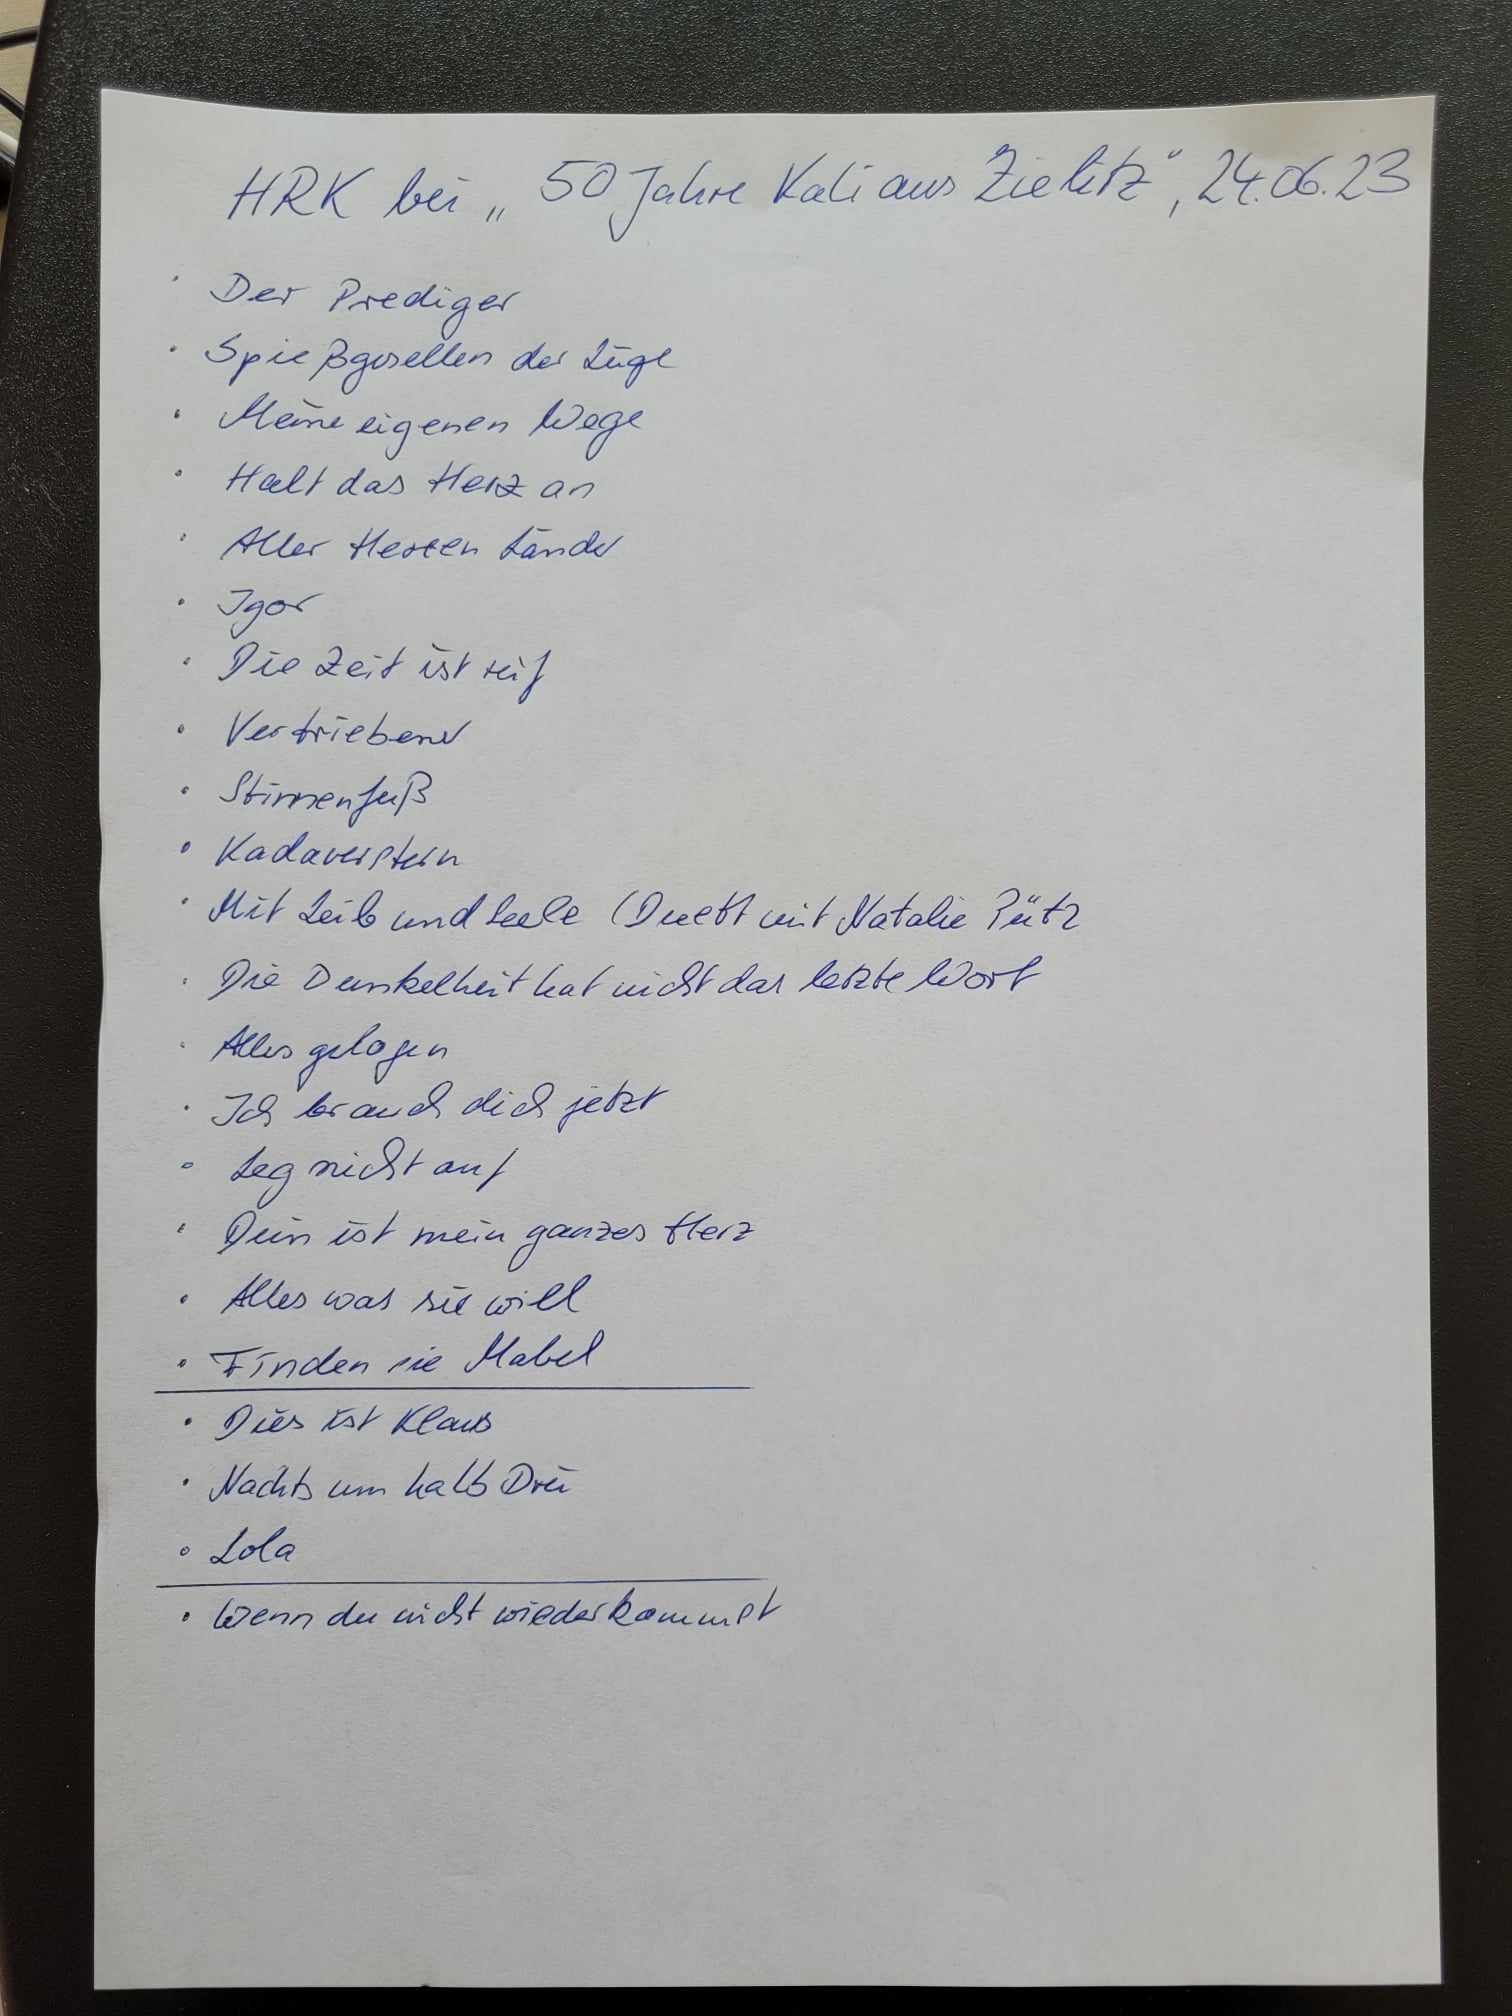 HRK bei „50 Jahre Kali aus Zielitz", 24.06.23
· Der Prediger
· Spießgesellen der Lüge
· Meine eigenen Wege
· Halt das Herz an
· Aller Herren Länder
· Igor
· Die Zeit ist reif
· Vertriebener
· Stirnenfuß
· Kadaverstern
· Mit Leib und Seele (Duett mit Natalie Pütz
· Die Dunkelheit hat nicht das letzte Wort
· Alles gelogen
· Ich brauch dich jetzt
· Leg nicht auf
· Dein ist mein ganzes Herz
· Alles was sie will
· Finden sie Mabel
· Dies ist Klaus
· Nachts um halb Drei
· Lola
· Wenn du nicht wiederkommst